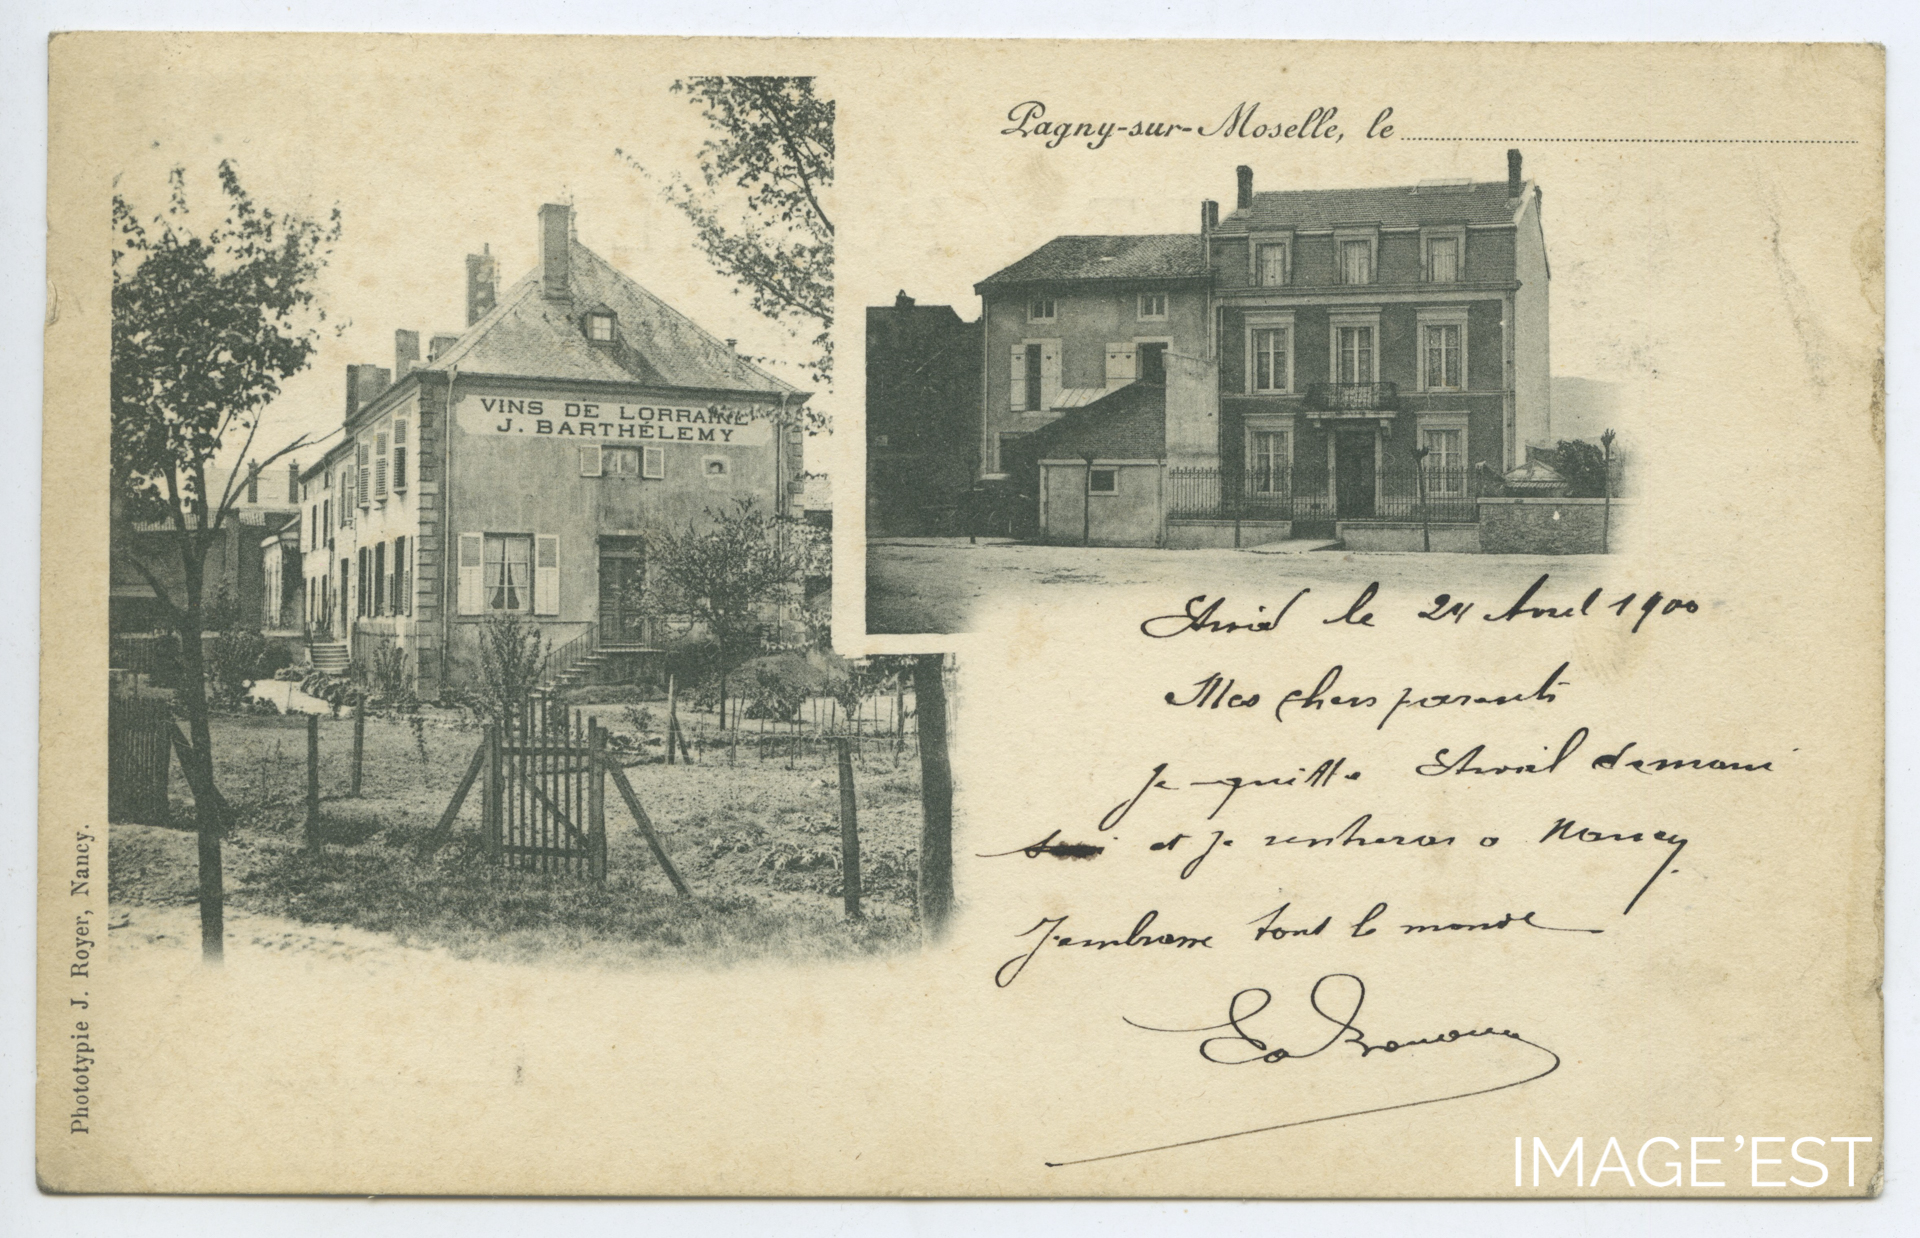 Pagny-sur-Moselle, le
VINS DE LORRAINE
J. BARTHÉLEMY
le 24 Avril 1900
Mes chers parents
Je quitte demain
et je rentrerai a Nancy.
J'embrasse tout le monde
Phototypie J. Royer, Nancy.
IMAGE'EST